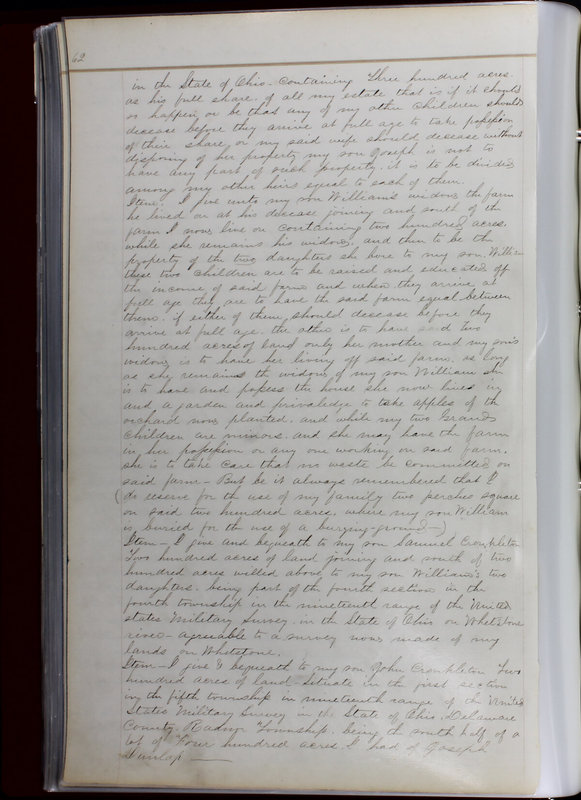 62
in the State of Ohio. Containing Three hundred acres
as his full share of all my estate that is if it should
so happen or be that any of my other children should
decease before they arrive at full age to take possession
of their share or my said wife should decease without
disposing of her property my son Joseph is not to
have any part of such property. it is to be divided
among my other heirs equal to each of them.
Item. I give unto my son William's widow the farm
he lived on at his decease joining and south of the
farm I now live on containing two hundred acres.
while she remains his widow, and then to be the
property of the two daughters she bore to my son William
these two children are to be raised and educated off
the income of said farm and when they arrive at
full age they are to have the said farm equal between
them. if either of them should decease before they
arrive at full age. the other is to have said two
hundred acres of land only her mother and my son's
widow is to have her living off said farm. as long
as she remains the widow of my son William she
is to have and possess the house she now lives in
and a garden and privaledge to take apples of the
orchard now planted. and while my two Grand
children are minors. and she may have the farm
in her possession or any one working on said farm.
she is to take care that no waste be committed on
said farm - But be it always remembered that I
(do reserve for the use of my family two perches square
on said two hundred acres, where my son William
is buried for the use of a burying-ground -)
Item - I give and bequeath to my son Samuel Cronkleton
Two hundred acres of land joining and south of two
hundred acres willed above to my son William's two
daughters. being part of the fourth section in the
fourth township in the nineteenth range of the United
states Military Survey. in the State of Ohio on Whetstone
river - agreeable to a survey now made of my
lands on Whetstone.
Item - I give & bequeath to my son John Cronkleton Two
hundred acres of land. Situate in the first section
in the fifth township in nineteenth range of the United
States Military Survey in the State of Ohio, Delaware
County. Radnor Township. being the south half of a
lot of Four hundred acres I had of Joseph
Dunlap -